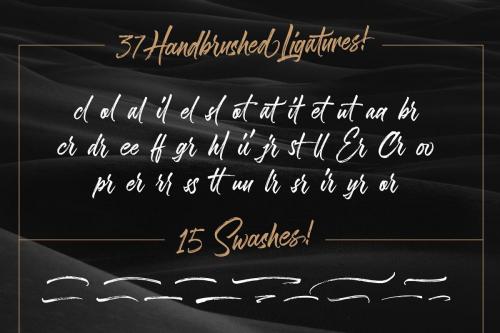 37 Handbrushed Ligatures!
cl ol al il el sl ot at it et ut aa br
cr dr ee ff gr hl ii jr st ll Er Cr ov
pr er rr ss tt uu lr sr ir yr or
15 Swashes!